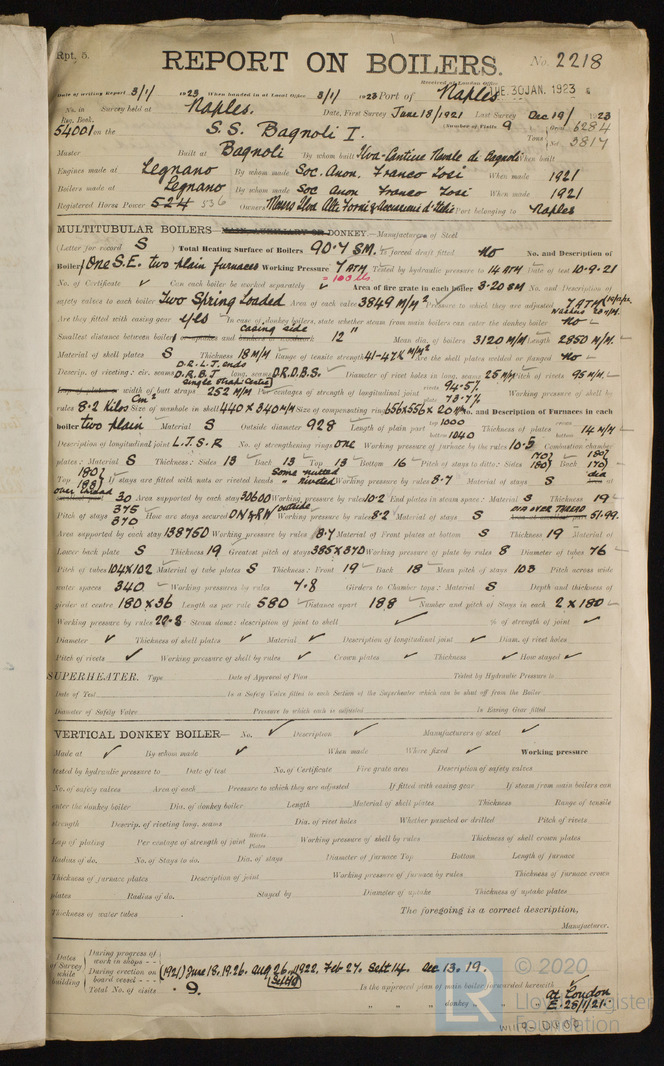 Rpt. 5.
REPORT ON BOILERS.
No. 2218
Received at London Office
TUE. 30 JAN. 1923
Date of writing Report 3/1/ 1923 When handed in at Local Office 3/1/ 1923 Port of Naples
No. in Reg. Book. Survey held at Naples. Date, First Survey June 18/1921 Last Survey Dec 19/ 1923
54001 on the S.S. Bagnoli I. (Number of Visits 9 Tons Gross 6284 Net 3817
Master Built at Bagnoli By whom built Ilva-Cantiere Navale de Bagnoli When built
Engines made at Legnano By whom made Soc. Anon. Franco Tosi When made 1921
Boilers made at Legnano By whom made Soc Anon Franco Tosi When made 1921
Registered Horse Power 524 536 Owners Port belonging to Naples
MULTITUBULAR BOILERS MAIN, AUXILIARY OR DONKEY.—Manufacturers of Steel
(Letter for record S) Total Heating Surface of Boilers 90.7 SM. Is forced draft fitted No No. and Description of
Boilers One S.E. two plain furnaces Working Pressure 7 ATM Tested by hydraulic pressure to 14 ATM Date of test 10-9-21
= 100 lbs
No. of Certificate ✓ Can each boiler be worked separately ✓ Area of fire grate in each boiler 3.20 SM No. and Description of
safety valves to each boiler Two Spring Loaded Area of each valve 3849 M/M² Pressure to which they are adjusted 7 ATM
Are they fitted with easing gear yes In case of donkey boilers, state whether steam from main boilers can enter the donkey boiler No
Smallest distance between boilers casing side 12" Mean dia. of boilers 3120 M/M Length 2850 M/M.
Material of shell plates S Thickness 18 M/M Range of tensile strength 41-47¼ M/M² Are the shell plates welded or flanged No
Descrip. of riveting: cir. seams D.R.L.J. ends D.R.B.J long. seams D.R.D.B.S. Diameter of rivet holes in long. seams 25 M/M Pitch of rivets 95 M/M.
Lap of plates or width of butt straps 252 M/M Per centages of strength of longitudinal joint rivets 94.5% plate 73.7% Working pressure of shell by
rules 8.2 Kilos Cm² Size of manhole in shell 440 x 340 M/M Size of compensating ring 656x556 x 20 M/M No. and Description of Furnaces in each
boiler two plain Material S Outside diameter 928 Length of plain part top 1000 bottom 1040 Thickness of plates crown bottom 14 M/M
Description of longitudinal joint L.J.S.R No. of strengthening rings one Working pressure of furnace by the rules 10.5 Combustion chamber
plates: Material S Thickness: Sides 13 Back 13 Top 13 Bottom 16 Pitch of stays to ditto: Sides 170/180 Back 180/170
Top 180/188 If stays are fitted with nuts or riveted heads Some nutted " riveted Working pressure by rules 8.7 Material of stays S dia at
over thread 30 Area supported by each stay 30600 Working pressure by rules 10.2 End plates in steam space: Material S Thickness 19
Pitch of stays 375 370 How are stays secured D N & R W outside Working pressure by rules 8.2 Material of stays S DIA OVER THREAD 51.99.
Area supported by each stay 138750 Working pressure by rules 8.7 Material of Front plates at bottom S Thickness 19 Material of
Lower back plate S Thickness 19 Greatest pitch of stays 385x370 Working pressure of plate by rules 8 Diameter of tubes 76
Pitch of tubes 104x102 Material of tube plates S Thickness: Front 19 Back 18 Mean pitch of stays 103 Pitch across wide
water spaces 340 Working pressures by rules 7.8 Girders to Chamber tops: Material S Depth and thickness of
girder at centre 180 x 36 Length as per rule 580 Distance apart 188 Number and pitch of Stays in each 2 x 180
Working pressure by rules 22.8 Steam dome: description of joint to shell ✓ % of strength of joint ✓
Diameter ✓ Thickness of shell plates ✓ Material ✓ Description of longitudinal joint ✓ Diam. of rivet holes
Pitch of rivets ✓ Working pressure of shell by rules ✓ Crown plates ✓ Thickness ✓ How stayed ✓
SUPERHEATER. Type Date of Approval of Plan Tested by Hydraulic Pressure to
Date of Test Is a Safety Valve fitted to each Section of the Superheater which can be shut off from the Boiler
Diameter of Safety Valve Pressure to which each is adjusted Is Easing Gear fitted
VERTICAL DONKEY BOILER— No. ✓ Description ✓ Manufacturers of steel ✓
Made at ✓ By whom made ✓ When made Where fixed ✓ Working pressure
tested by hydraulic pressure to Date of test No. of Certificate Fire grate area Description of safety valves
No. of safety valves Area of each Pressure to which they are adjusted If fitted with easing gear If steam from main boilers can
enter the donkey boiler Dia. of donkey boiler Length Material of shell plates Thickness Range of tensile
strength Descrip. of riveting long. seams Dia. of rivet holes Whether punched or drilled Pitch of rivets
Lap of plating Per centage of strength of joint Rivets Plates Working pressure of shell by rules Thickness of shell crown plates
Radius of do. No. of Stays to do. Dia. of stays Diameter of furnace Top Bottom Length of furnace
Thickness of furnace plates Description of joint Working pressure of furnace by rules Thickness of furnace crown
plates Radius of do. Stayed by Diameter of uptake Thickness of uptake plates
Thickness of water tubes The foregoing is a correct description,
Manufacturer.
Dates of Survey while building
During progress of work in shops - -
During erection on board vessel - - -
(1921) June 18, 19, 26. Aug 26. 1922. Feb 27. Sept 14. Dec 13. 19.
Total No. of visits 9.
Is the approved plan of main boiler forwarded herewith at London
" " " donkey " " " E. 28/1/21.
© 2020
LR
Lloyd's Register
Foundation